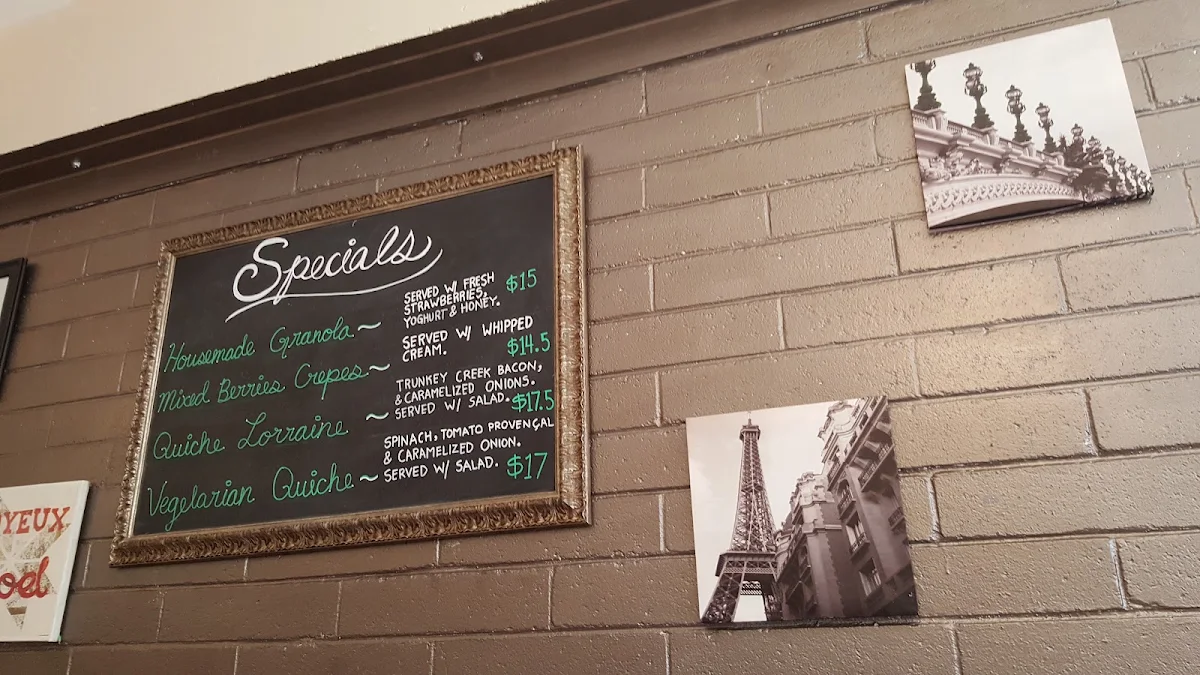 Specials
Housemade Granola~
SERVED W/ FRESH
STRAWBERRIES,
YOGHURT & HONEY.
$15
Mixed Berries Crepes~
SERVED W/ WHIPPED
CREAM.
$14.5
Quiche Lorraine ~
TRUNKEY CREEK BACON,
& CARAMELIZED ONIONS.
SERVED W/ SALAD.
$17.5
Vegetarian Quiche~
SPINACH, TOMATO PROVENÇAL
& CARAMELIZED ONION.
SERVED W/ SALAD.
$17
YEUX
oel